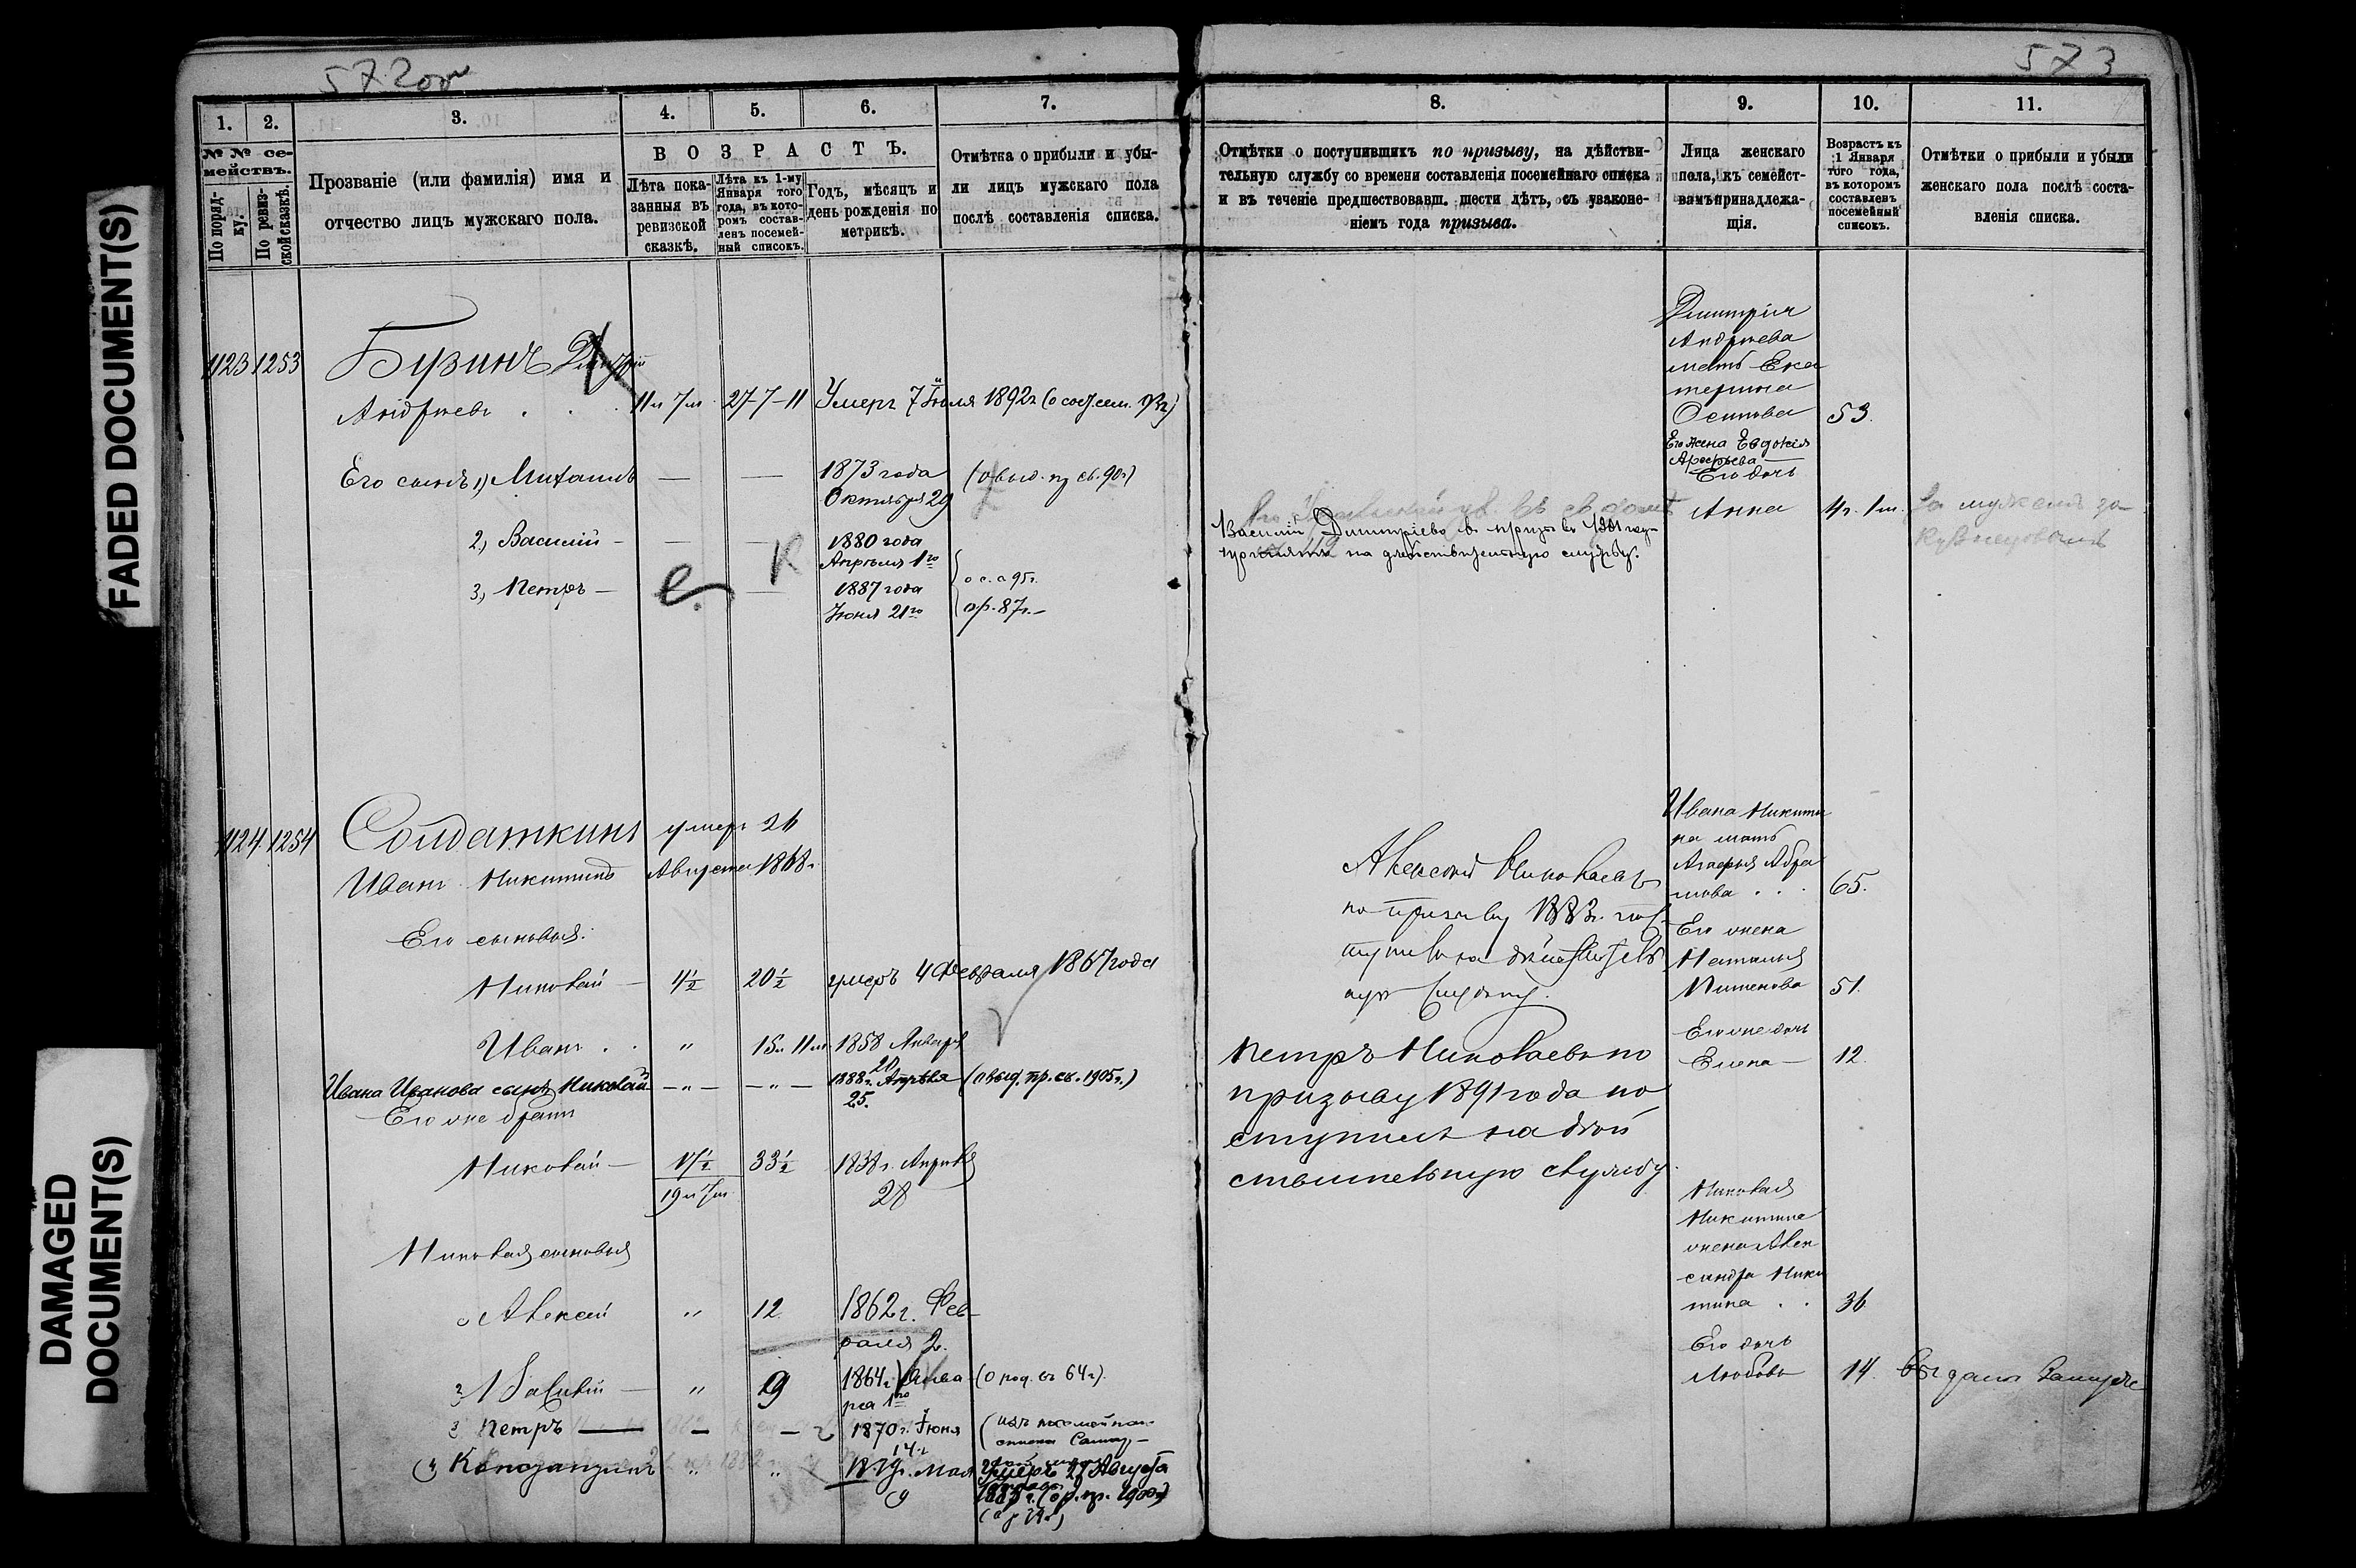 572об
573
FADED DOCUMENT(S)
DAMAGED
DOCUMENT(S)
1.
2.
3.
4.
5.
6.
7.
№ № се-
мействъ.
По поряд-
ку.
По ревиз-
ской сказкѣ.
Прозваніе (или фамилія) имя и
отчество лицъ мужскаго пола.
ВОЗРАСТЪ.
Лѣта пока-
занныя въ
ревизской
сказкѣ.
Лѣта къ 1-му
Января того
года, въ кото-
ромъ состав-
ленъ посемей-
ный списокъ.
Годъ, мѣсяцъ и
день рожденія по
метрикѣ.
Отмѣтка о прибыли и убы-
ли лицъ мужскаго пола
послѣ составленія списка.
1123 1253
Бузинъ Дмитрій
Андреевъ 11л 7м 27-7-11 Умеръ 7 Іюля 1892г
Его сынъ 1) Михаилъ — — 1873 года
Октября 29
2) Василій — — — 1880 года
Апрѣля 1го
3) Петръ — — 1887 года
Іюня 21го
о с. с 95г.
ор. 87г.
1124 1254
Солдаткинъ умеръ 26
Иванъ Никитинъ Августа 1868г.
Его сыновья:
Николай — 4½ 20½ умеръ 4 Февраля 1867 года
Иванъ . . " 15л 11м 1858 Января
20
Ивана Иванова сынъ Николай — " — — " — 1888г. Апрѣля (о выд. пр. св. 1905г.)
25.
Его же братъ
Николай — 17½ 33½ 1838г. Апрѣля
19л 7м 28
Николая сыновья
Алексей " 12 1862г. Фев-
раля 2.
2 Василій — " 9 1864г. Янва- (о род. въ 64г.)
ря 1го
3 Петръ — — — 1870г. Іюня
14г
4) Константинъ " " Мая Умеръ 27 Августа
9
8.
9.
10.
11.
Отмѣтки о поступившихъ по призыву, на дѣйстви-
тельную службу со времени составленія посемейнаго списка
и въ теченіе предшествовавш. шести лѣтъ, съ узаконе-
ніемъ года призыва.
Лица женскаго
пола, къ семейст-
вамъ принадлежа-
щія.
Возрастъ къ
1 Января
того года,
въ которомъ
составленъ
посемейный
списокъ.
Отмѣтки о прибыли и убыли
женскаго пола послѣ соста-
вленія списка.
Дмитрія
Андреева
мать Ека
терина
Осипова 53.
Его жена Евдокія
Его дочь
Анна 4г. 1м. За мужемъ за
Кузнецовымъ
Василій Дмитріевъ въ призывъ 1901 году
принятъ на дѣйствительную службу.
Ивана Никити
на мать
Агафья Абра
мова . . . 65.
Его жена
Наталья
Пименова 51.
Его же дочь
Елена — 12.
Алексей Николаевъ
по призыву 1883г. пос-
тупилъ на дѣйствитель
ную службу.
Петръ Николаевъ по
призыву 1891 года по
ступилъ на дѣй
ствительную службу.
Николая
Никитина
жена Алек
сандра Ники
тина . . 36
Его дочь
Любовь 14. Выдана замужъ